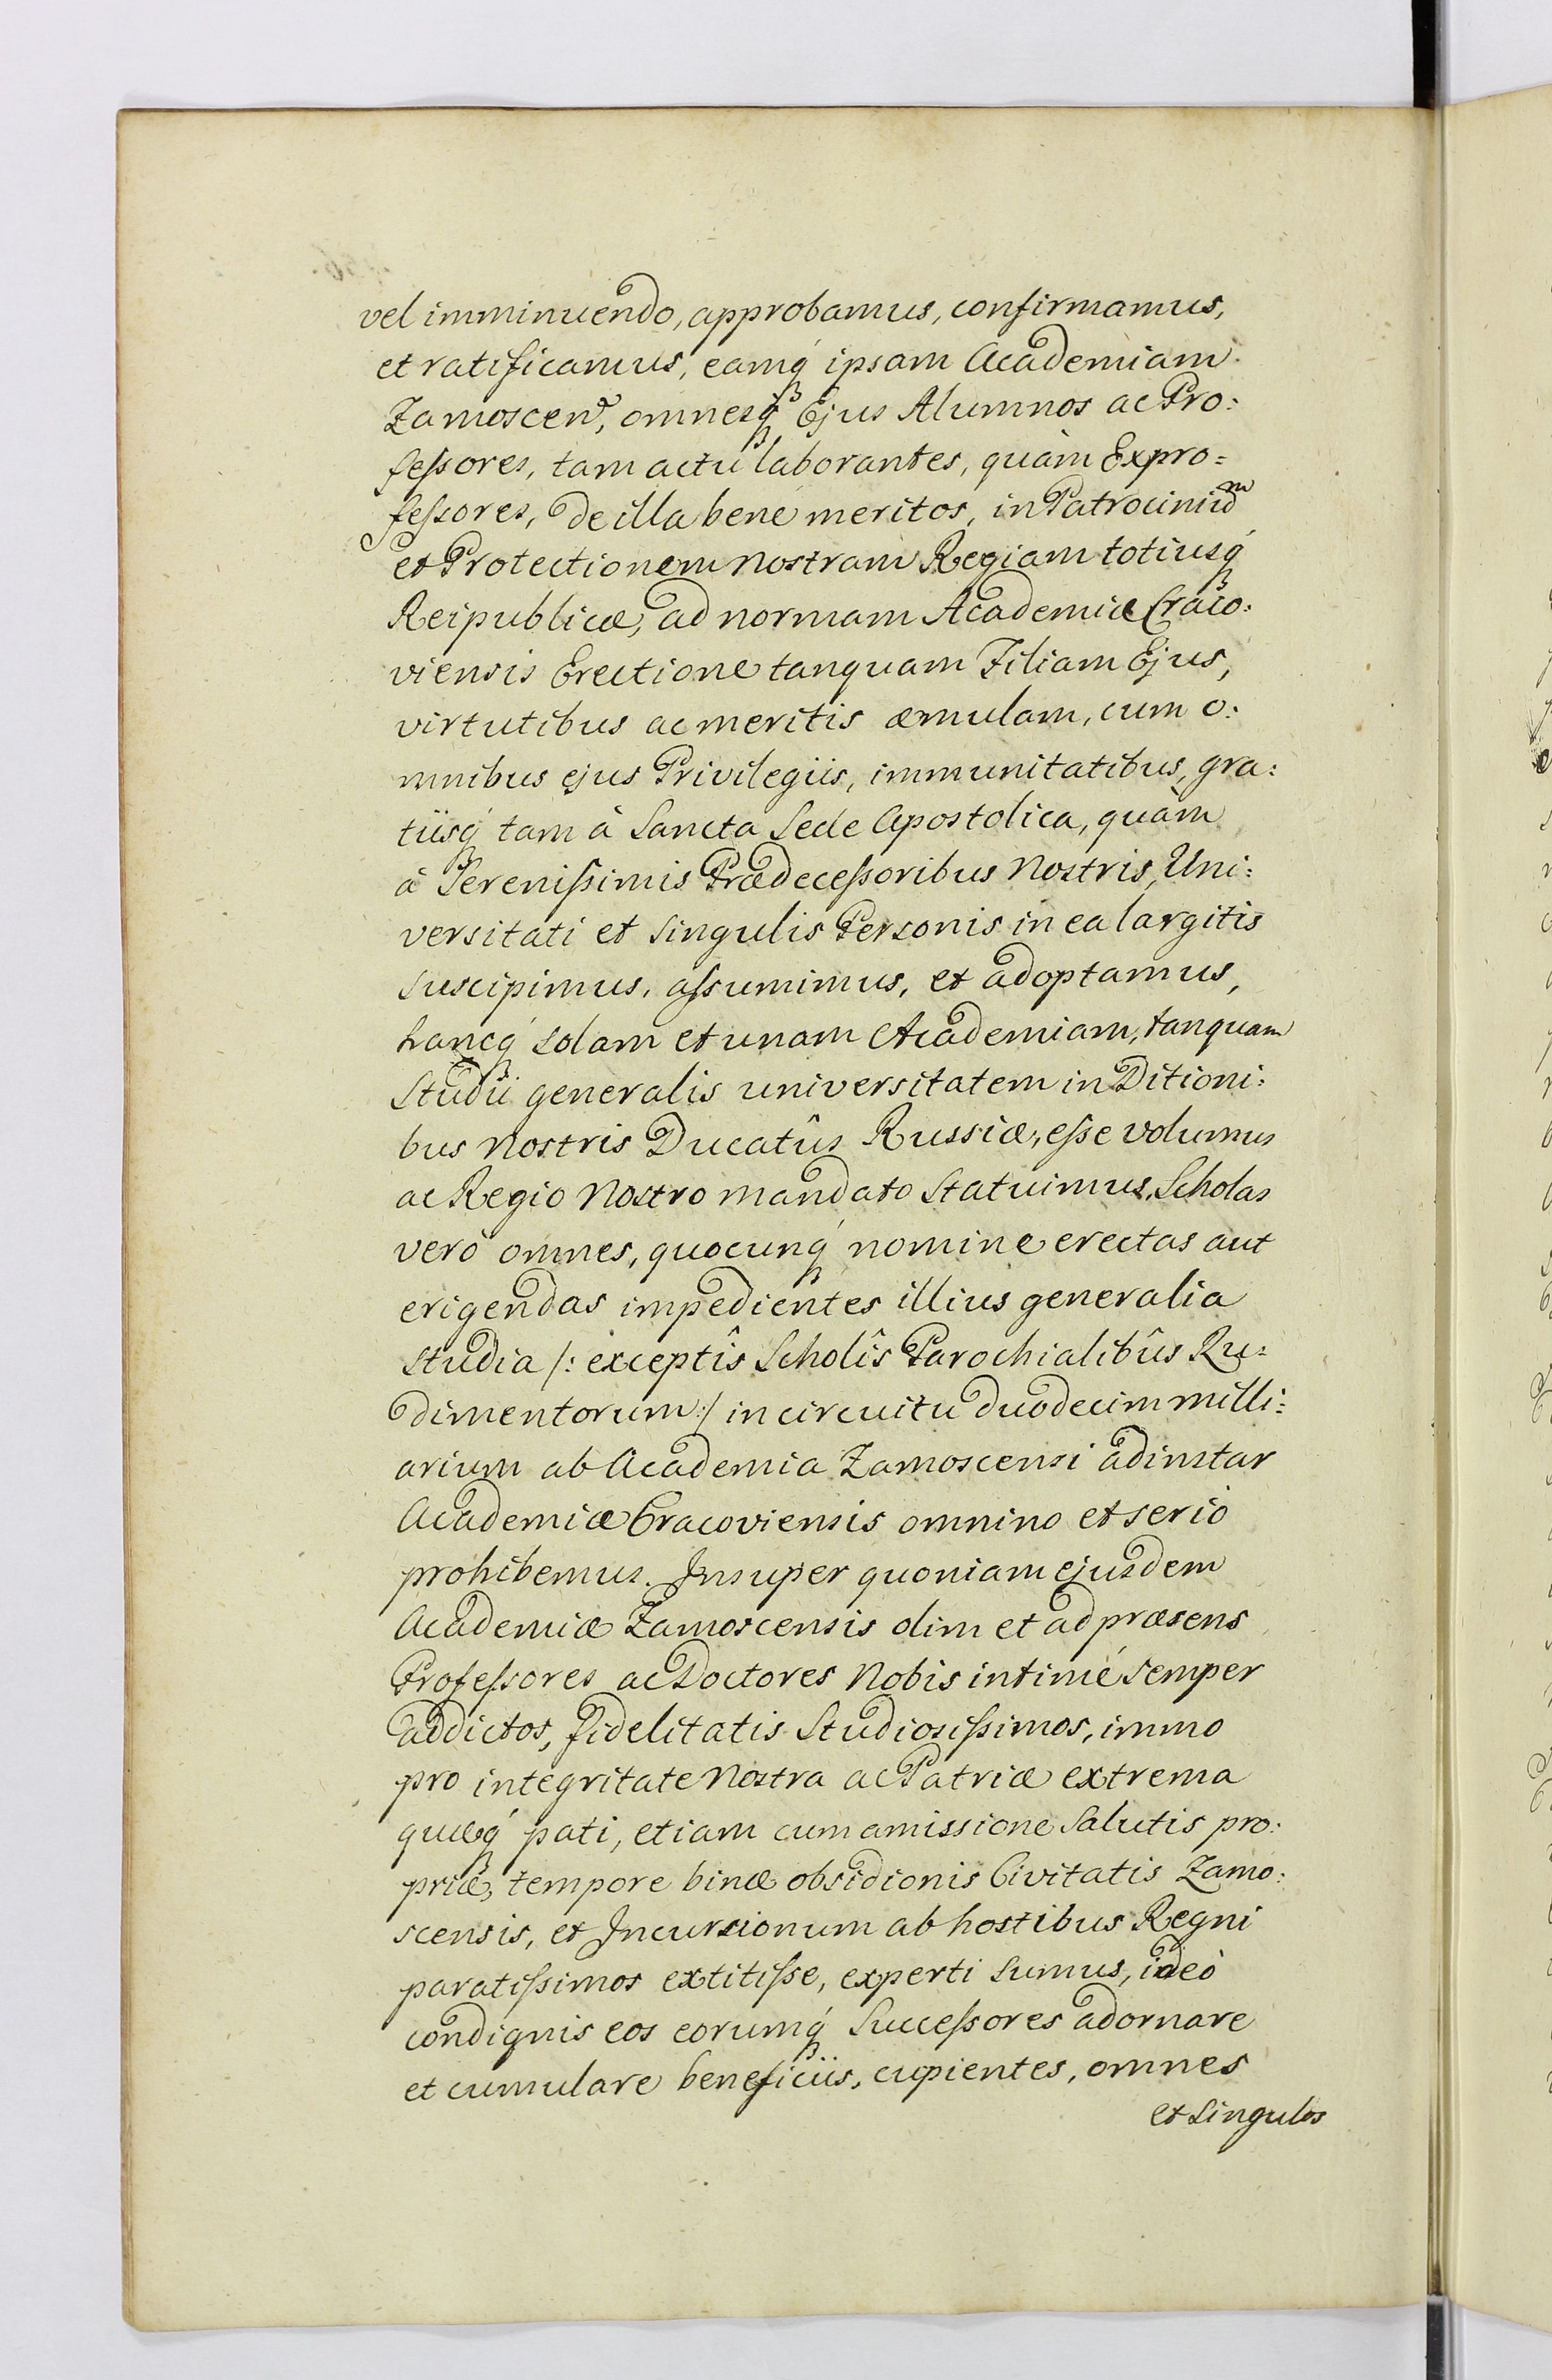 vel imminuendo, approbamus, confirmamus,
et ratificamus, eamq́ ipsam Academiam
Zamoscen, omnesq́ Ejus Alumnos ac Pro:
feſsores, tam actu laborantes, quàm Expro=
feſsores, de illa bene meritos, in Patrociniũm
et Protectionem Nostram Regiam totiusq́
Reipublicæ, ad normam Academiæ Craco:
viensis Erectione tanquam Filiam Ejus,
virtutibus ac meritis æmulam, cum o:
mnibus ejus Privilegiis, immunitatibus, gra:
tiisq́ tam à Sancta Sede Apostolica, quàm
à Sereniſsimis Prædeceſsoribus Nostris, Uni:
versitati et singulis Personis in ea largitis
suscipimus, aſsumimus, et adoptamus,
hancq́ solam et unam Academiam, tanquam
Studii generalis universitatem in Ditioni:
bus Nostris Ducatûs Russiæ, eſse volumus
ac Regio Nostro mandato Statuimus. Scholas
verò omnes, quocunq́ nomine erectas aut
erigendas impedientes illius generalia
studia /: exceptîs Scholîs Parochialibûs Ru=
dimentorum :/ in circuitu duodecim milli:
arium ab Academia Zamoscensi adinstar
Academiæ Cracoviensis omnino et seriò
prohibemus. Insuper quoniam ejusdem
Academiæ Zamoscensis olim et ad præsens
Profeſsores ac Doctores Nobis intimé semper
addictos, fidelitatis Studiosiſsimos, immo
pro integritate Nostra ac Patriæ extrema
quæq́ pati, etiam cum amissione Salutis pro:
priæ, tempore binæ obsidionis Civitatis Zamo:
scensis, et Incursionum ab hostibus Regni
paratiſsimos extitiſse, experti sumus, ideò
condignis eos eorumq́ Succeſsores adornare
et cumulare beneficiis, cupientes, omnes
et singulos